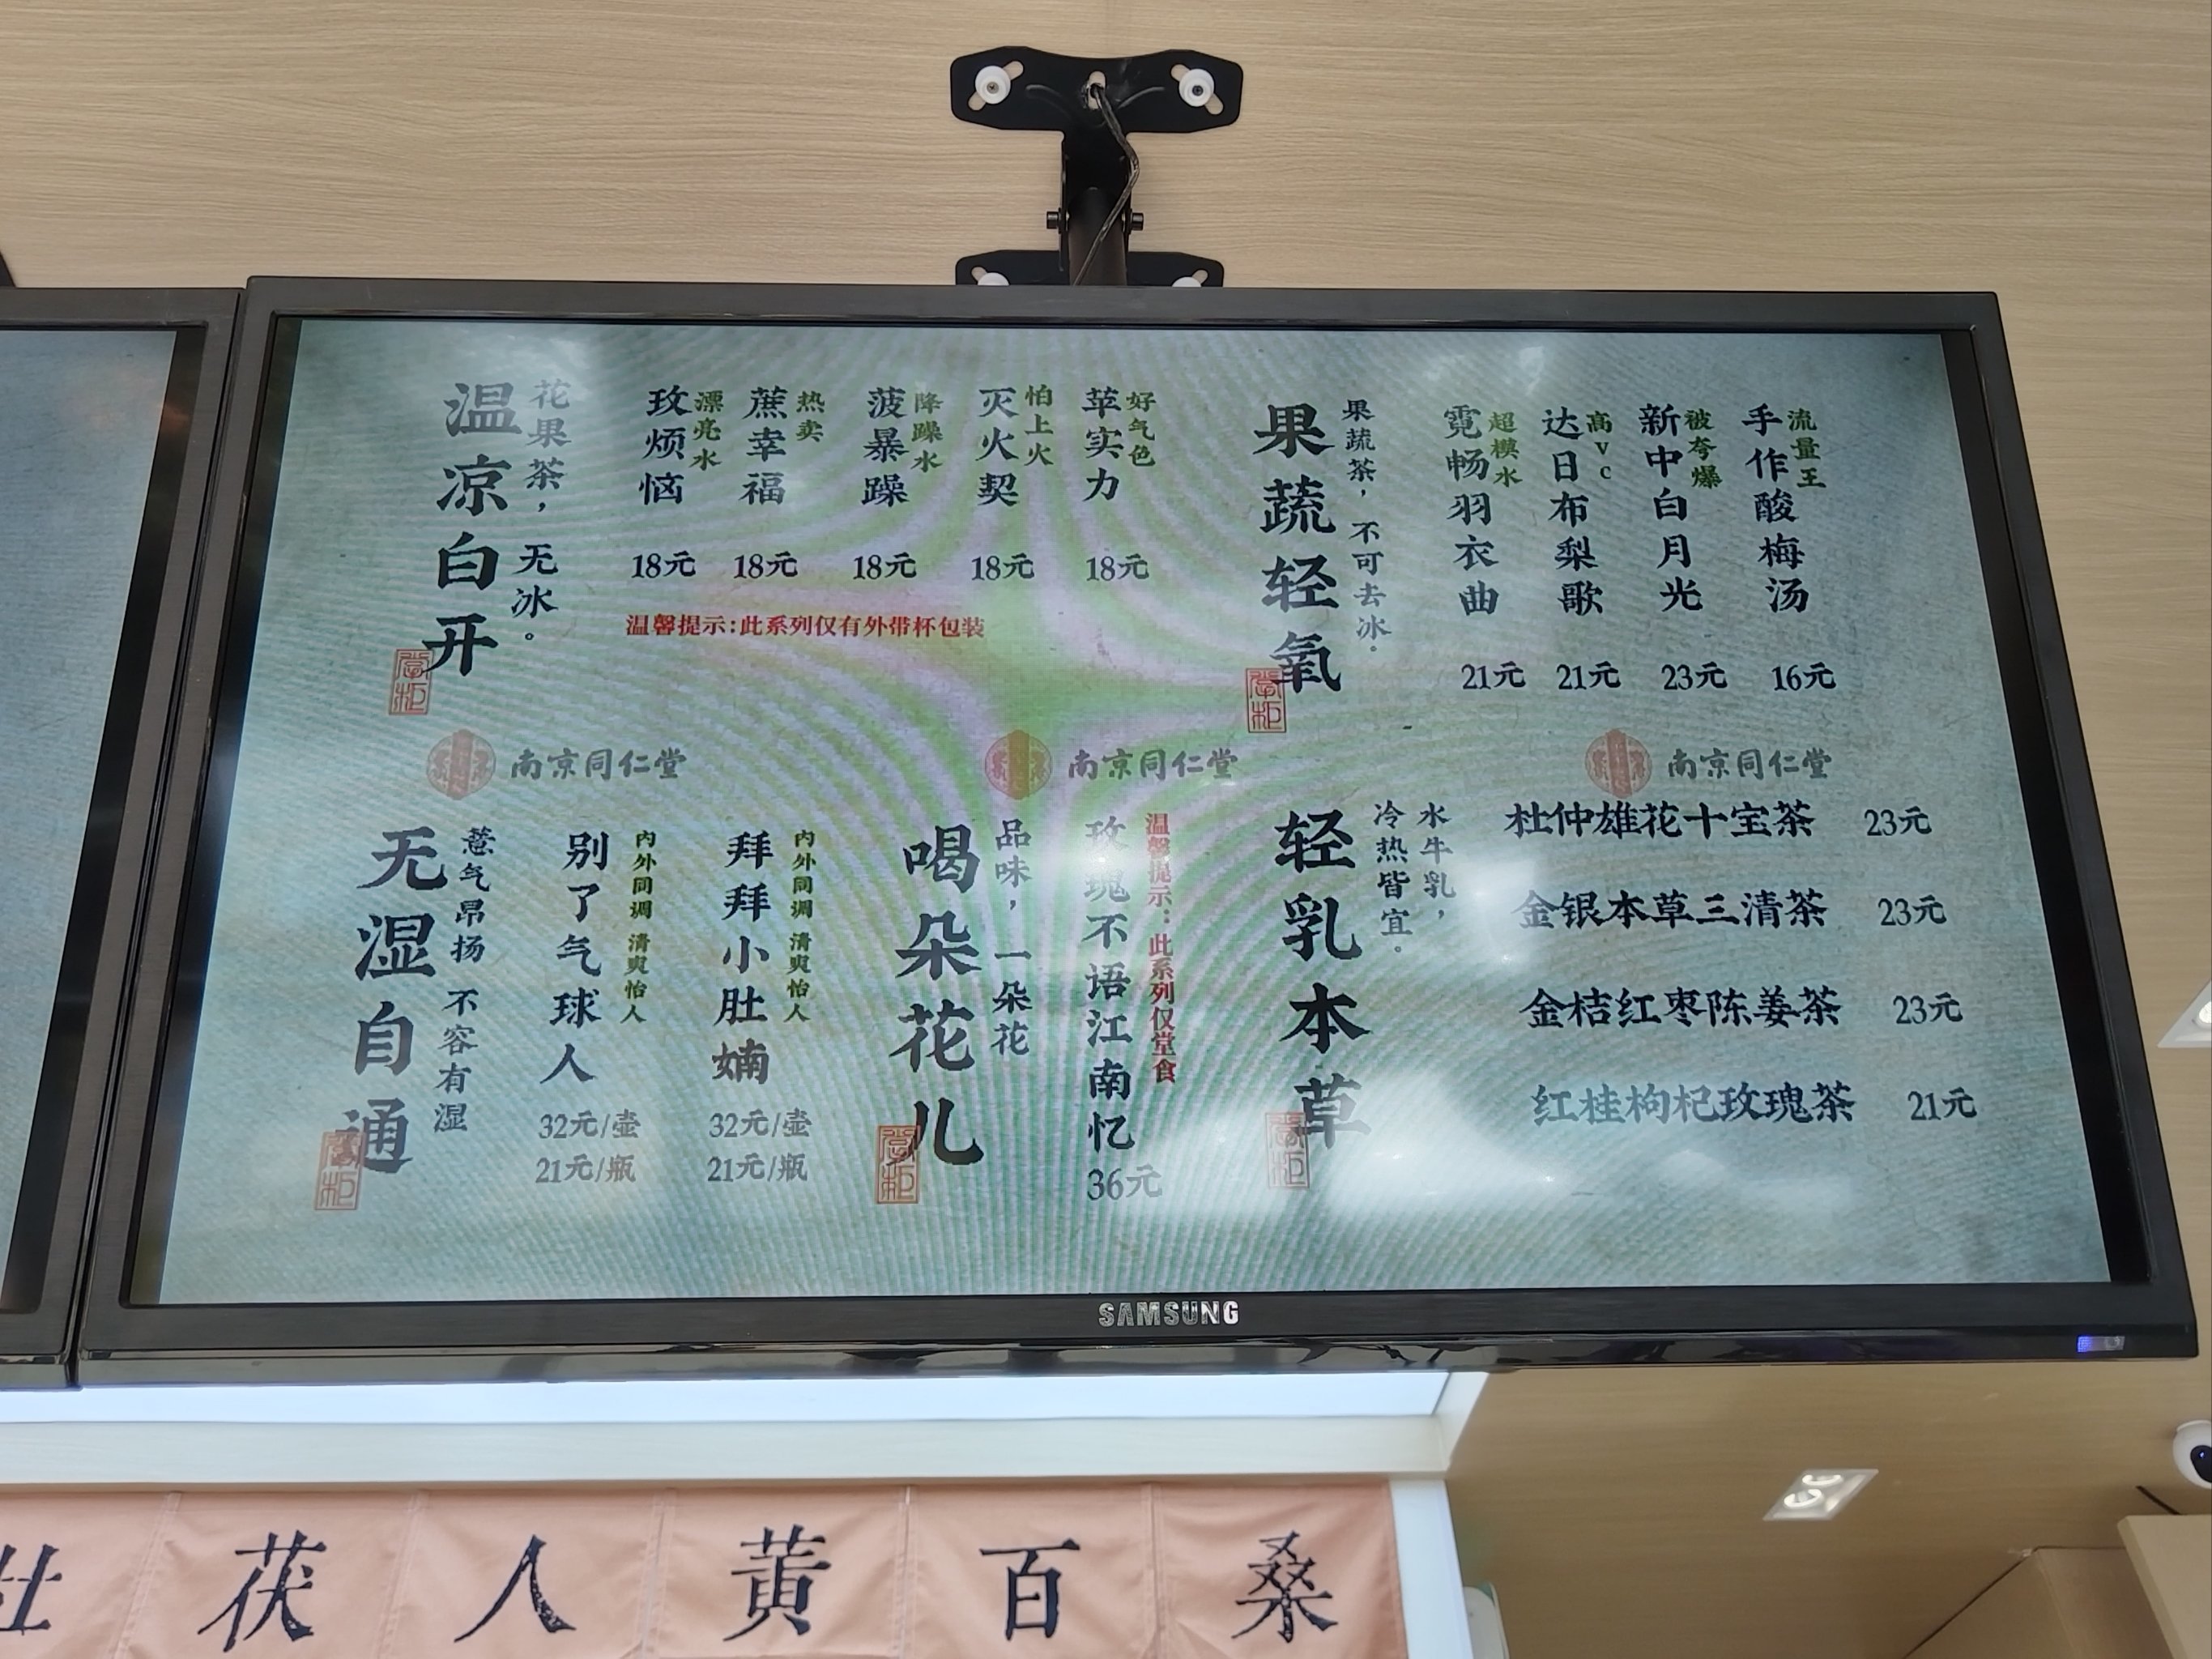 温凉白开
花果茶，无冰。
玫烦恼
漂亮水
18元
蔗幸福
热卖
18元
菠暴躁
降躁水
18元
灭火契
怕上火
18元
苹实力
好气色
18元
温馨提示:此系列仅有外带杯包装
掌柜
果蔬轻氧
果蔬茶，不可去冰。
霓畅羽衣曲
超模水
21元
达日布梨歌
高VC
21元
新中白月光
被夸爆
23元
手作酸梅汤
流量王
16元
掌柜
南京同仁堂
南京同仁堂
南京同仁堂
无湿自通
薏气昂扬 不容有湿
别了气球人
内外同调 清爽怡人
32元/壶
21元/瓶
拜拜小肚婻
内外同调 清爽怡人
32元/壶
21元/瓶
掌柜
喝朵花儿
品味，一朵花
玫瑰不语江南忆
36元
温馨提示：此系列仅堂食
掌柜
轻乳本草
水牛乳，
冷热皆宜。
杜仲雄花十宝茶 23元
金银本草三清茶 23元
金桔红枣陈姜茶 23元
红桂枸杞玫瑰茶 21元
掌柜
SAMSUNG
杜 茯 人 黄 百 桑